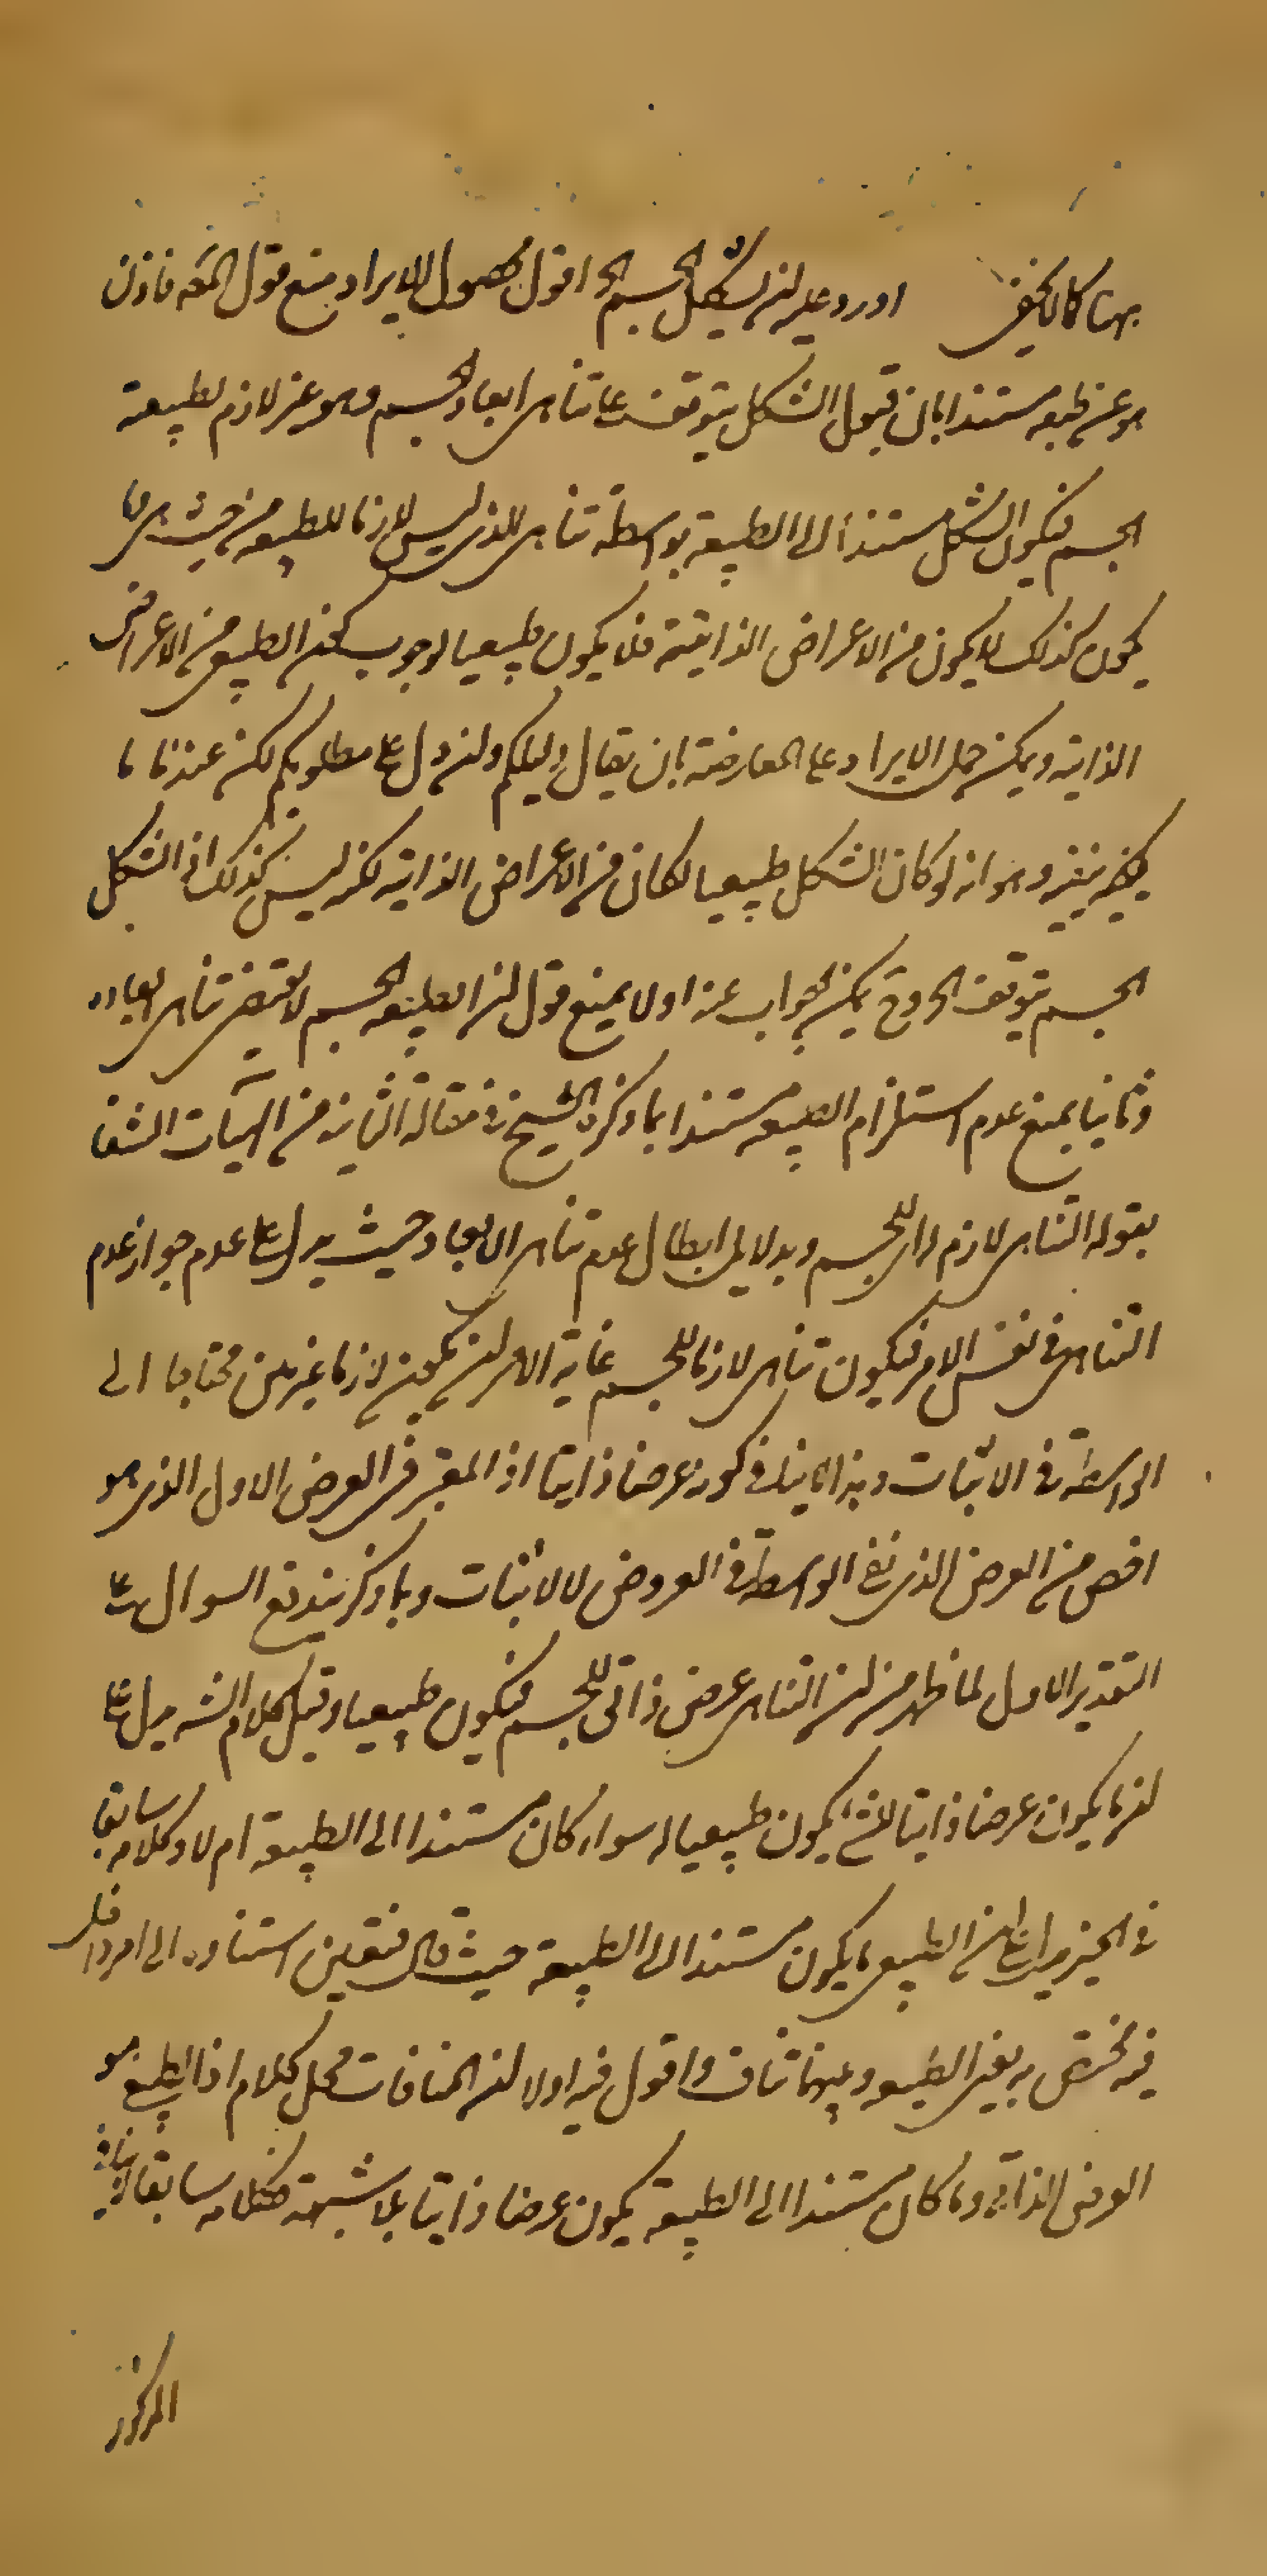 بهنا كما لا يخفى اورد عليه ان لشكل الجسم الخ اقول محصول الايراد منع قول المص فاذن
هو عن طبعه مستندا بان قبول الشكل يتوقف على تناهى ابعاد الجسم وهو غير لازم لطبيعة
الجسم فيكون الشكل مستندا الى الطبيعة بواسطة تناهى الذى ليس لازما للطبيعة من حيث هى وما
يكون كذلك لا يكون من الاعراض الذاتية فلا يكون طبيعيا لوجوب كون الطبيعى من الاعراض
الذاتية ويمكن حمل الايراد على المعارضة بان يقال دليلكم وان دل على مطلوبكم لكن عندنا ما
ينفيه وهو انه لو كان الشكل طبيعيا لكان من الاعراض الذاتية لكنه ليس كذلك اذ الشكل
الجسم يتوقف الخ وح يمكن الجواب عنه اولا بمنع قول ان الطبيعة الجسم لا يقتضى تناهى ابعاده
وثانيا بمنع عدم استلزام الطبيعة مستندا بما ذكره الشيخ فى مقالة الثانية من الهيات الشفا
بقوله التناهى لازم للجسم وبدلايل ابطال عدم تناهى الابعاد حيث يدل على عدم جواز عدم
التناهى فى نفس الامر فيكون تناهى لازما للجسم غاية الامر ان يكون لازما غير بين محتاجا الى
الواسطة فى الاثبات وهذا لا ينافى كونه عرضا ذاتيا اذ المعتبر فى العرض الاول الذى هو
اخص من العرض الذاتى نفى الواسطة فى العروض لا الاثبات وبما ذكر يندفع السوال على
التقدير الاول لما ظهر من ان التناهى عرض ذاتى للجسم فيكون طبيعيا وقيل كلام الشه يدل على
ان ما يكون عرضا ذاتيا لشئ يكون طبيعيا له سواء كان مستندا الى الطبيعة ام لا وكلامه سابقا
فى الحيز يدل على ان الطبيعى ما يكون مستندا الى الطبيعة حيث قال فتعين استناده الى امر داخل
فيه مختص به يعنى الطبيعة وبينهما تناف واقول فيه اولا ان المنافات محل كلام اذ الطبيعى هو
العرض الذاتى وما كان مستندا الى الطبيعة يكون عرضا ذاتيا بلا شبهة فكلامه سابقا لا ينافى
المذكور